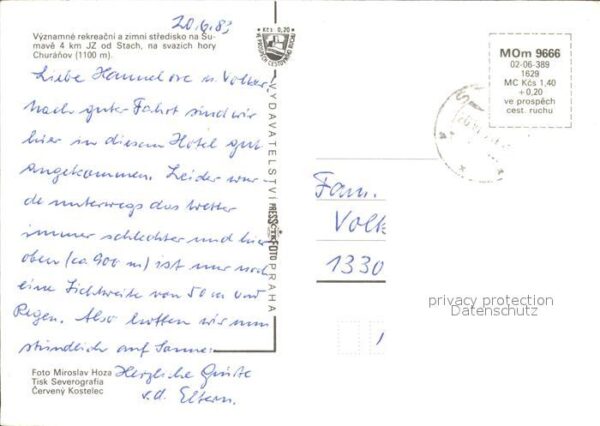 20.6.83
Významné rekreační a zimní středisko na Šu-
mavě 4 km JZ od Stach, na svazích hory
Churáňov (1100 m).
Kčs 0,20
VE PROSPĚCH CESTOVNÍHO RUCHU
Liebe Hannelore u. Volker,
nach guter Fahrt sind wir
hier in diesem Hotel gut
angekommen. Leider wur-
de unterwegs das Wetter
immer schlechter und hier
oben (ca. 900 m) ist nur noch
eine Sichtweite von 50 m und
Regen. Also hoffen wir nun
stündlich auf Sonne.
Herzliche Grüße
v.d. Eltern.
Foto Miroslav Hoza
Tisk Severografia
Červený Kostelec
VYDAVATELSTVÍ PRESSFOTO PRAHA
ČTK
MOm 9666
02-06-389
1629
MC Kčs 1,40
+0,20
ve prospěch
cest. ruchu
Fam.
Volk
1330
privacy protection
Datenschutz